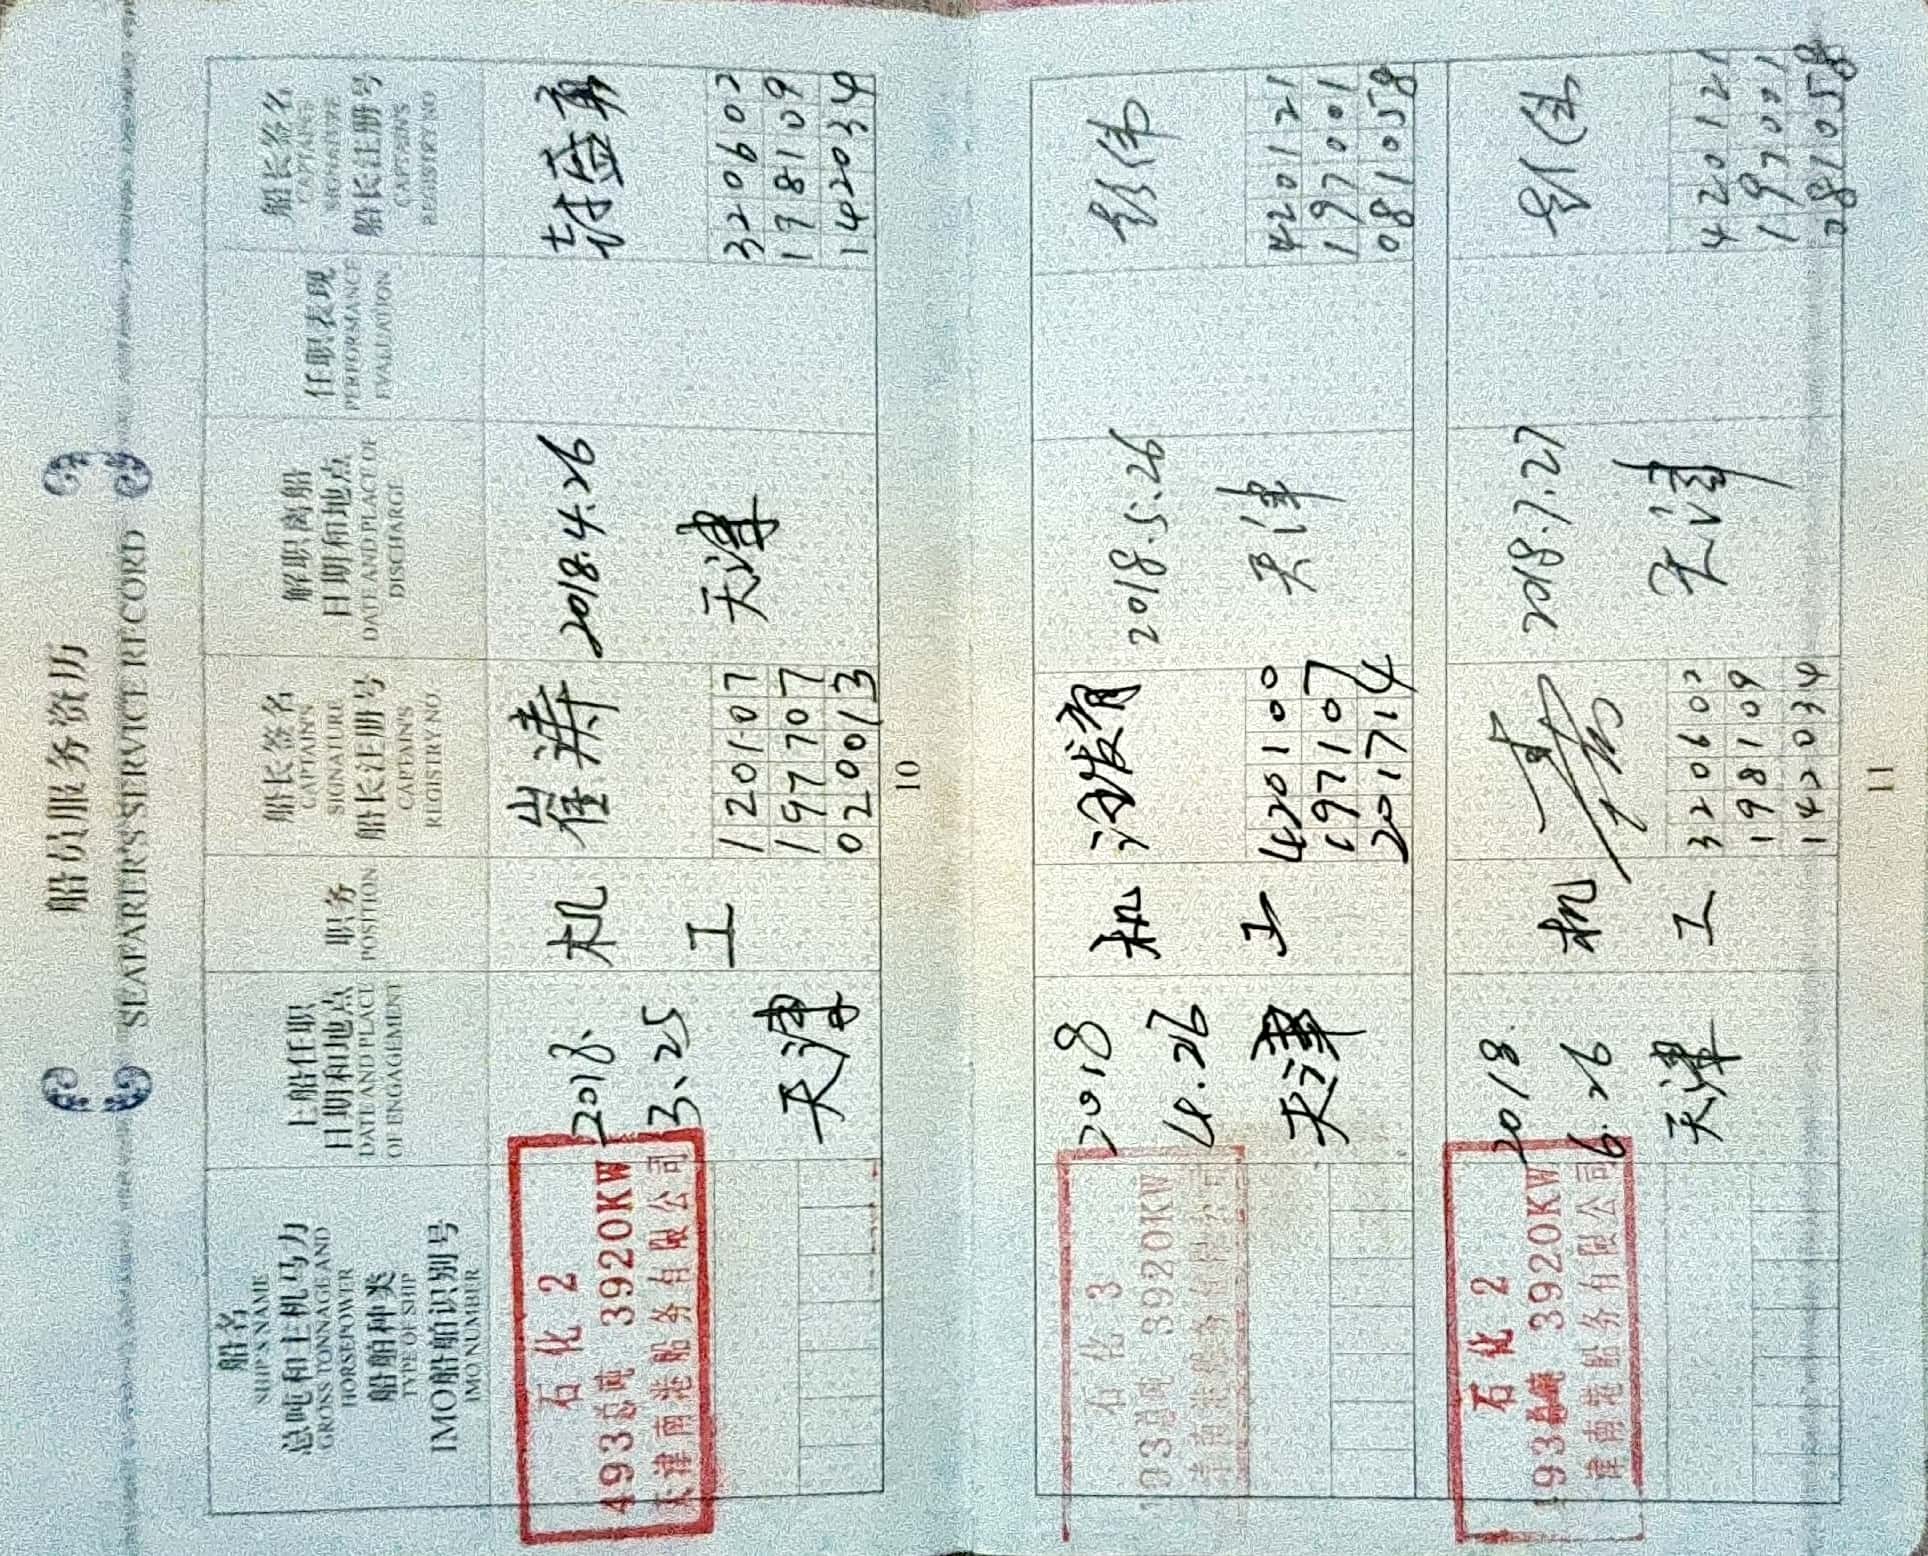 船员服务资历
SEAFARER'S SERVICE RECORD
船名
SHIP'S NAME
总吨和主机马力
GROSS TONNAGE AND
HORSEPOWER
船舶种类
TYPE OF SHIP
IMO船舶识别号
IMO NUMBER
上船任职
日期和地点
DATE AND PLACE
OF ENGAGEMENT
职务
POSITION
船长签名
CAPTAIN'S
SIGNATURE
船长注册号
CAPTAIN'S
REGISTRY NO
解职离船
日期和地点
DATE AND PLACE OF
DISCHARGE
任职表现
PERFORMANCE
EVALUATION
船长签名
CAPTAIN'S
SIGNATURE
船长注册号
CAPTAIN'S
REGISTRY NO
石化2
493总吨 3920KW
天津南港船务有限公司
2018.
3.25
天津
机
工
崔涛
120107
197707
020013
2018.4.26
天津
320602
198109
142034
10
石化3
493总吨 3920KW
津南港船务有限公司
2018
4.26
天津
机
工
420100
197107
201714
2018.5.26
天津
彭伟
420121
197001
081058
石化2
493总吨 3920KW
津南港船务有限公司
2018.
6.26
天津
机
工
320602
198109
142034
2018.7.27
天津
彭伟
420121
197001
081058
11